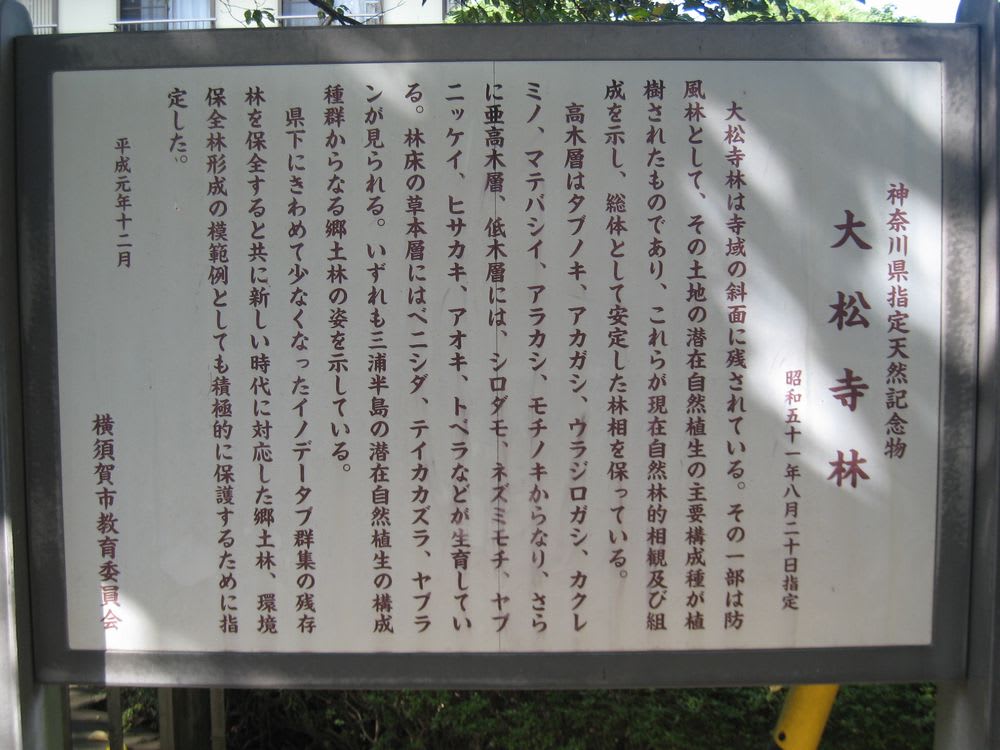 神奈川県指定天然記念物
大松寺林
昭和五十一年八月二十日指定
大松寺林は寺域の斜面に残されている。その一部は防
風林として、その土地の潜在自然植生の主要構成種が植
樹されたものであり、これらが現在自然林的相観及び組
成を示し、総体として安定した林相を保っている。
高木層はタブノキ、アカガシ、ウラジロガシ、カクレ
ミノ、マテバシイ、アラカシ、モチノキからなり、さら
に亜高木層、低木層には、シロダモ、ネズミモチ、ヤブ
ニッケイ、ヒサカキ、アオキ、トベラなどが生育してい
る。林床の草本層にはベニシダ、テイカカズラ、ヤブラ
ンが見られる。いずれも三浦半島の潜在自然植生の構成
種群からなる郷土林の姿を示している。
県下にきわめて少なくなったイノデータブ群集の残存
林を保全すると共に新しい時代に対応した郷土林、環境
保全林形成の模範例としても積極的に保護するために指
定した。
平成元年十二月
横須賀市教育委員会